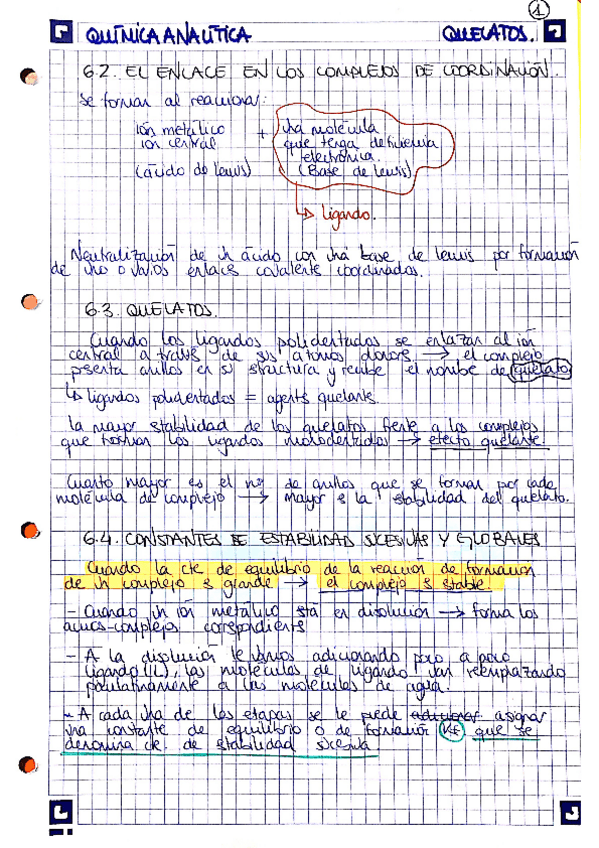 1
QUÍMICA ANALÍTICA QUELATOS.
6.2. EL ENLACE EN LOS COMPLEJOS DE COORDINACIÓN.
se forman al reaccionar:
ión metálico + una molécula
ión central que tenga deficiencia
electrónica.
(ácido de lewis) (Base de lewis)
↳ ligando.
Neutralización de un ácido con una base de lewis por formación
de uno o varios enlaces covalente coordinados.
6.3. QUELATOS.
Cuando los ligandos polidentados se enlazan al ión
central a través de sus átomos donores → el complejo
presenta anillos en su structura y recibe el nombre de quelato
↳ ligandos polidentados = agents quelante.
la mayor stabilidad de los quelatos frente a los complejos
que forman los ligandos monodentados → efecto quelante.
Cuanto mayor es el nº de anillos que se forman por cada
molécula de complejo → mayor s la stabilidad del quelato.
6.4. CONSTANTES DE ESTABILIDAD SUCESIVAS Y GLOBALES
Cuando la cte de equilibrio de la reacción de formación
de un complejo s grande → el complejo s stable.
- Cuando un ión metálico stá en disolución → forma los
acuos-complejos correspondients
- A la disolución le vamos adicionando poco a poco
ligando (L), las moléculas de ligando van reemplazando
paulatinamente a las moléculas de agua.
- A cada una de las etapas se le puede adicionar asignar
una constante de equilibrio o de formación (Kf) que se
denomina cte. de stabilidad sucesiva